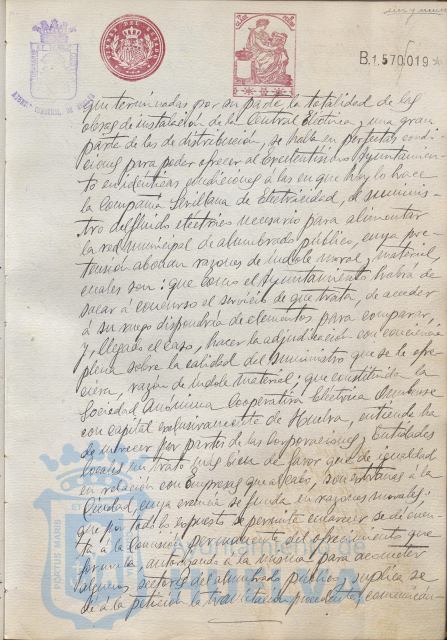 B.1,570,019
que terminadas por su parte la totalidad de las
obras de instalación de la Central Eléctrica, y una gran
parte de las de distribución, se halla en perfectas condi-
ciones para poder ofrecer al Excelentísimo Ayuntamien-
to en idénticas condiciones a las en que hoy lo hace
la Compañía Sevillana de Electricidad, el suminis-
tro del fluido eléctrico necesario para alimentar
la red municipal de alumbrado público, cuya pre-
tensión abonan razones de índole moral y material,
cuales son: que como el Ayuntamiento habrá de
sacar a concurso el servicio de que trata, de acceder
a su ruego dispondría de elementos para comparar,
y, llegado el caso, hacer la adjudicación con conciencia
plena sobre la calidad del suministro que se le ofre-
ciera, razón de índole material; que constituida la
Sociedad Anónima Cooperativa Eléctrica Onubense
con capital exclusivamente de Huelva, entiende ha
de merecer por parte de las Corporaciones y Entidades
locales un trato más bien de favor que de igualdad
en relación con Empresas que al caso, son extrañas a la
Ciudad, cuya creencia se funda en razones morales:
que por todo lo expuesto se permite encarecer se dé cuen-
ta a la Comisión permanente del ofrecimiento que
formula, autorizando a la misma para acometer
algunos sectores del alumbrado público, y suplica se
dé a la petición la tramitación procedente, comunicán-
PORTUS MARIS
Ayuntamiento de
HUELVA